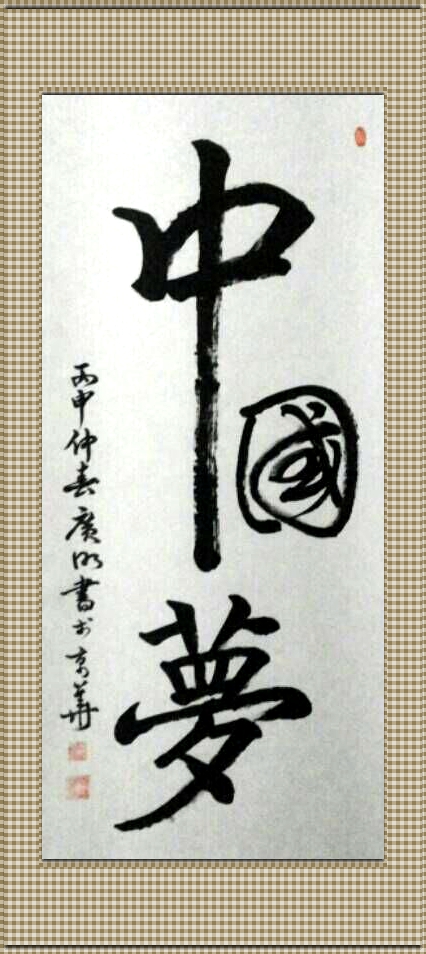 中國夢
丙申仲春廣明書於京華